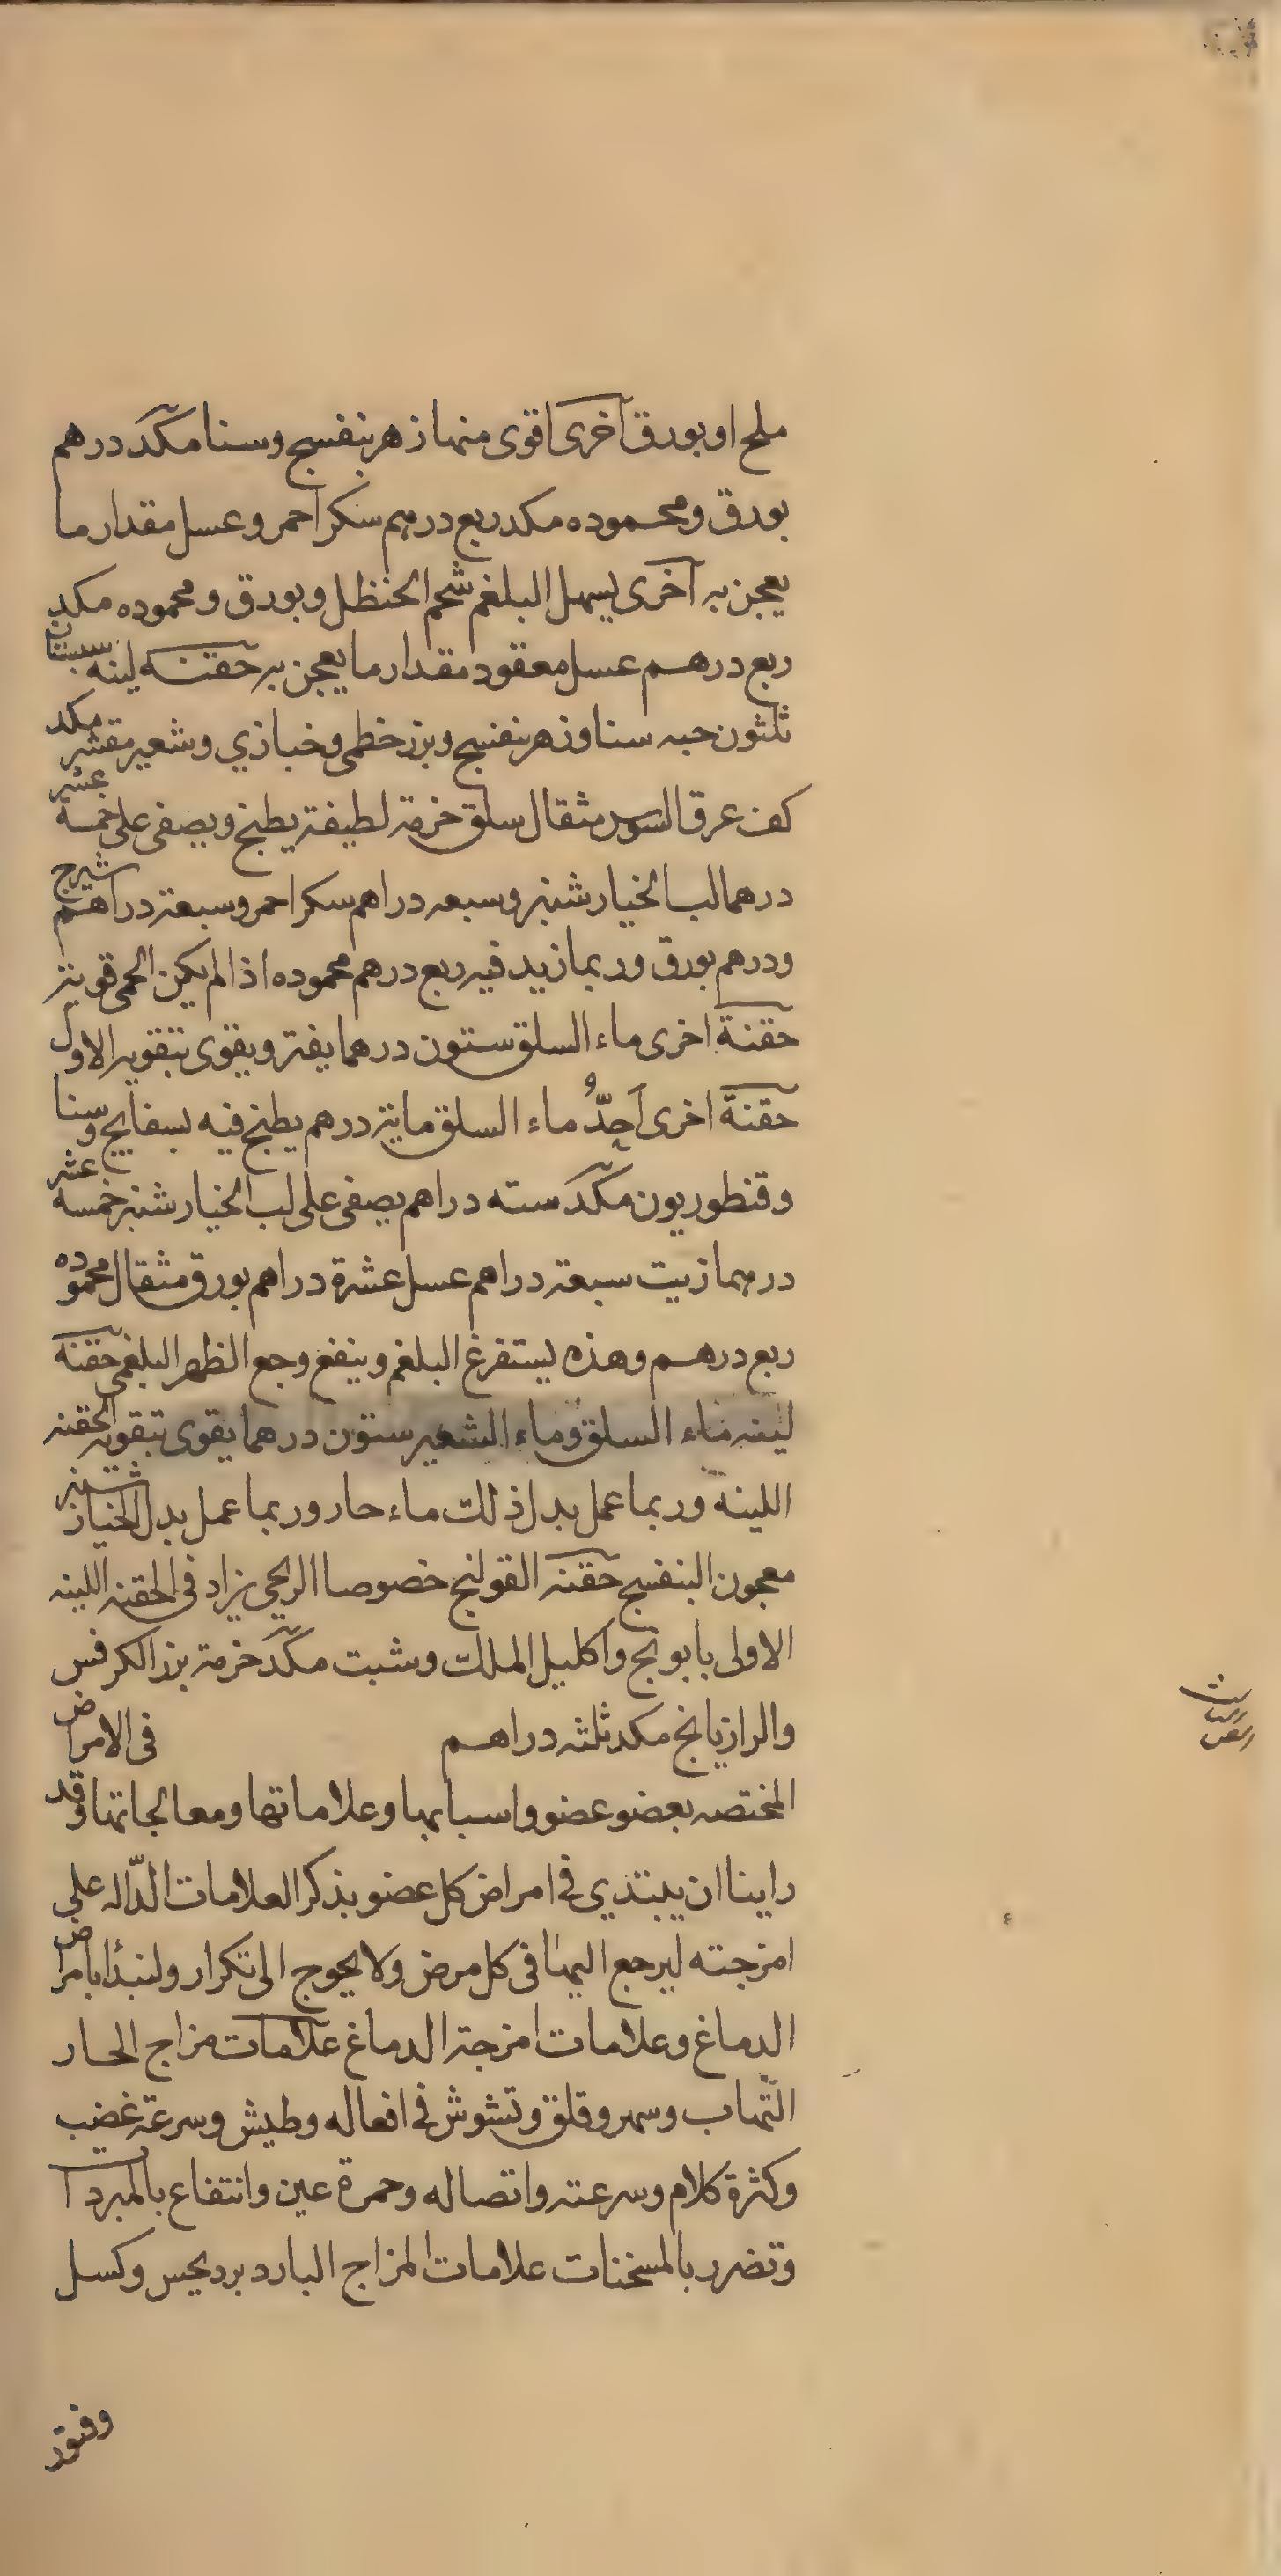 ملح او بورق اخرى اقوى منها زهر بنفسج وسنا مكد درهم
بورق ومحموده مكد ربع درهم سكر احمر وعسل مقدار ما
يعجن به اخرى يسهل البلغم شحم الحنظل وبورق ومحموده مكد
ربع درهم عسل معقود مقدار ما يعجن به حقنه لينه سبستان
ثلثون حبه سنا وزهر بنفسج وبزر خطمى وخبازي وشعير مقشر مكد
كف عرق السوس مثقال سلق حزمة لطيفة يطبخ ويصفى على خمسة عشر
درهما لب الخيار شنبر وسبعه دراهم سكر احمر وسبعة دراهم شيرج
ودرهم بورق وربما زيد فيه ربع درهم محموده اذا لم يكن الحمى قوية
حقنة اخرى ماء السلق ستون درهما يفتر ويقوى بتقويه الاول
حقنة اخرى احدّ ماء السلق ماية درهم يطبخ فيه بسفايج وسنا
وقنطوريون مكد سته دراهم يصفى على لب الخيار شنبر خمسة عشر
درهما زيت سبعة دراهم عسل عشرة دراهم بورق مثقال محموده
ربع درهم وهذه يستفرغ البلغم وينفع وجع الظهر البلغمى حقنه
لينه ماء السلق وماء الشعير ستون درهما يقوى بتقويه الحقنه
اللينة وربما عمل بدل ذلك ماء حار وربما عمل بدل الخيار شنبر
معجون البنفسج حقنه القولنج خصوصا الريحى يزاد فى الحقنه اللينه
الاولى بابونج واكليل الملك وشبت مكد حزمة بزر الكرفس
والرازيانج مكد ثلثه دراهم فى الامراض
المختصه بعضو عضو واسبابها وعلاماتها ومعالجاتها وقد
راينا ان يبتدي فى امراض كل عضو بذكر العلامات الدّاله على
امزجته ليرجع اليها فى كل مرض ولا يحوج الى تكرار ولنبدأ بامراض
الدماغ وعلامات امزجة الدماغ علامات مزاج الحار
التهاب وسهر وقلق وتشوش فى افعاله وطيش وسرعة غضب
وكثرة كلام وسرعته واتصاله وحمرة عين وانتفاع بالمبردات
وتضرر بالمسخنات علامات المزاج البارد برد يحس وكسل
وفتور